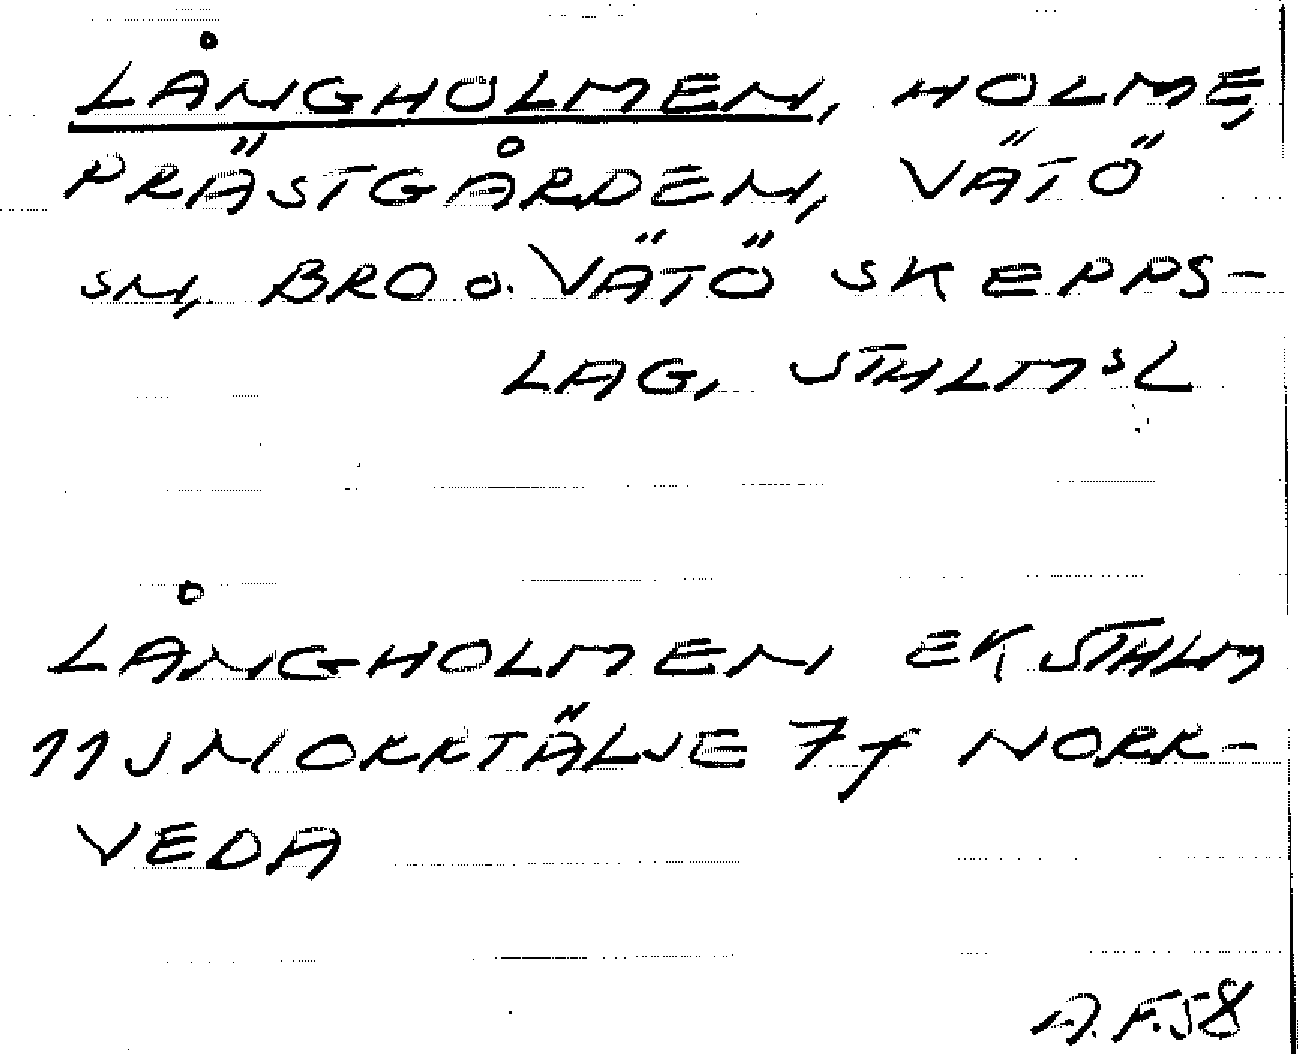 LÅNGHOLMEN, HOLME,
PRÄSTGÅRDEN, VÄTÖ
SN, BRO O. VÄTÖ SKEPPS-
LAG, STHLMS L
LÅNGHOLMEN EK STHLM
11J NORRTÄLJE 7f NORR-
VEDA
A.F.58